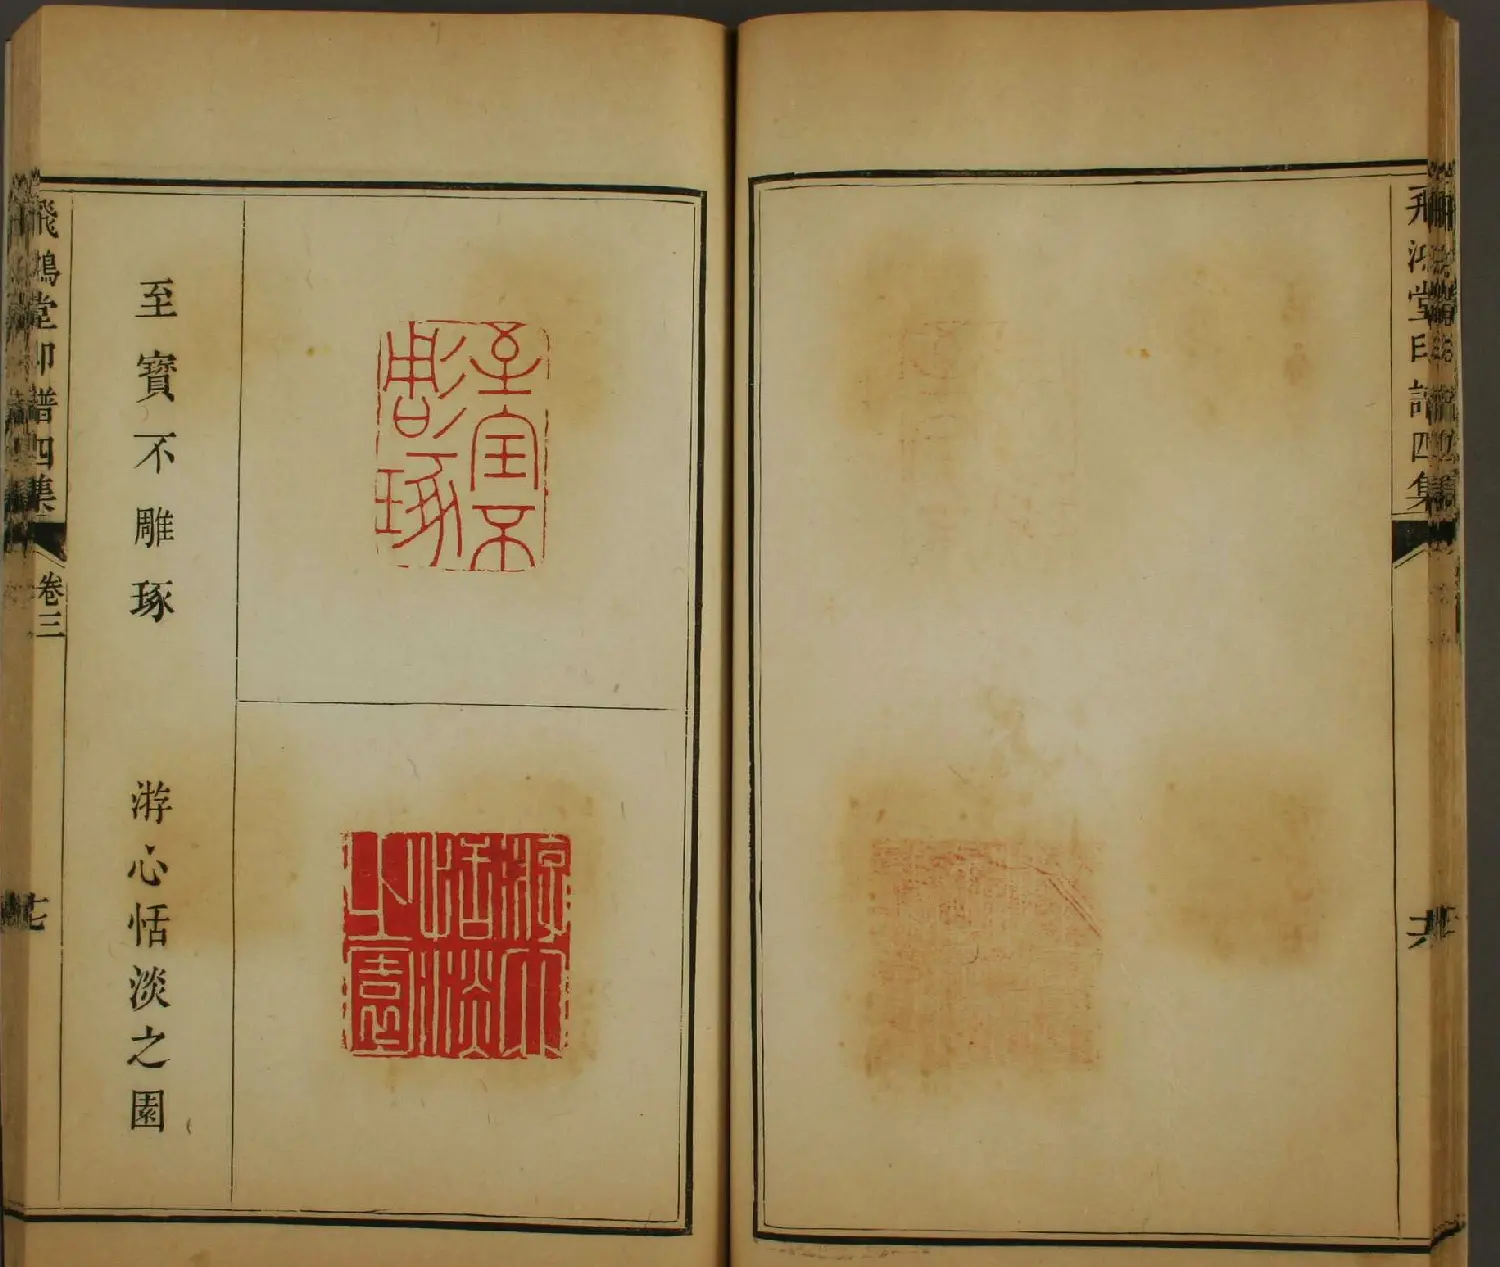 飛鴻堂印譜四集
至宝不
彫琢
游心
恬淡
之園
至寶不雕琢
游心恬淡之園
飛鴻堂印譜四集
卷三